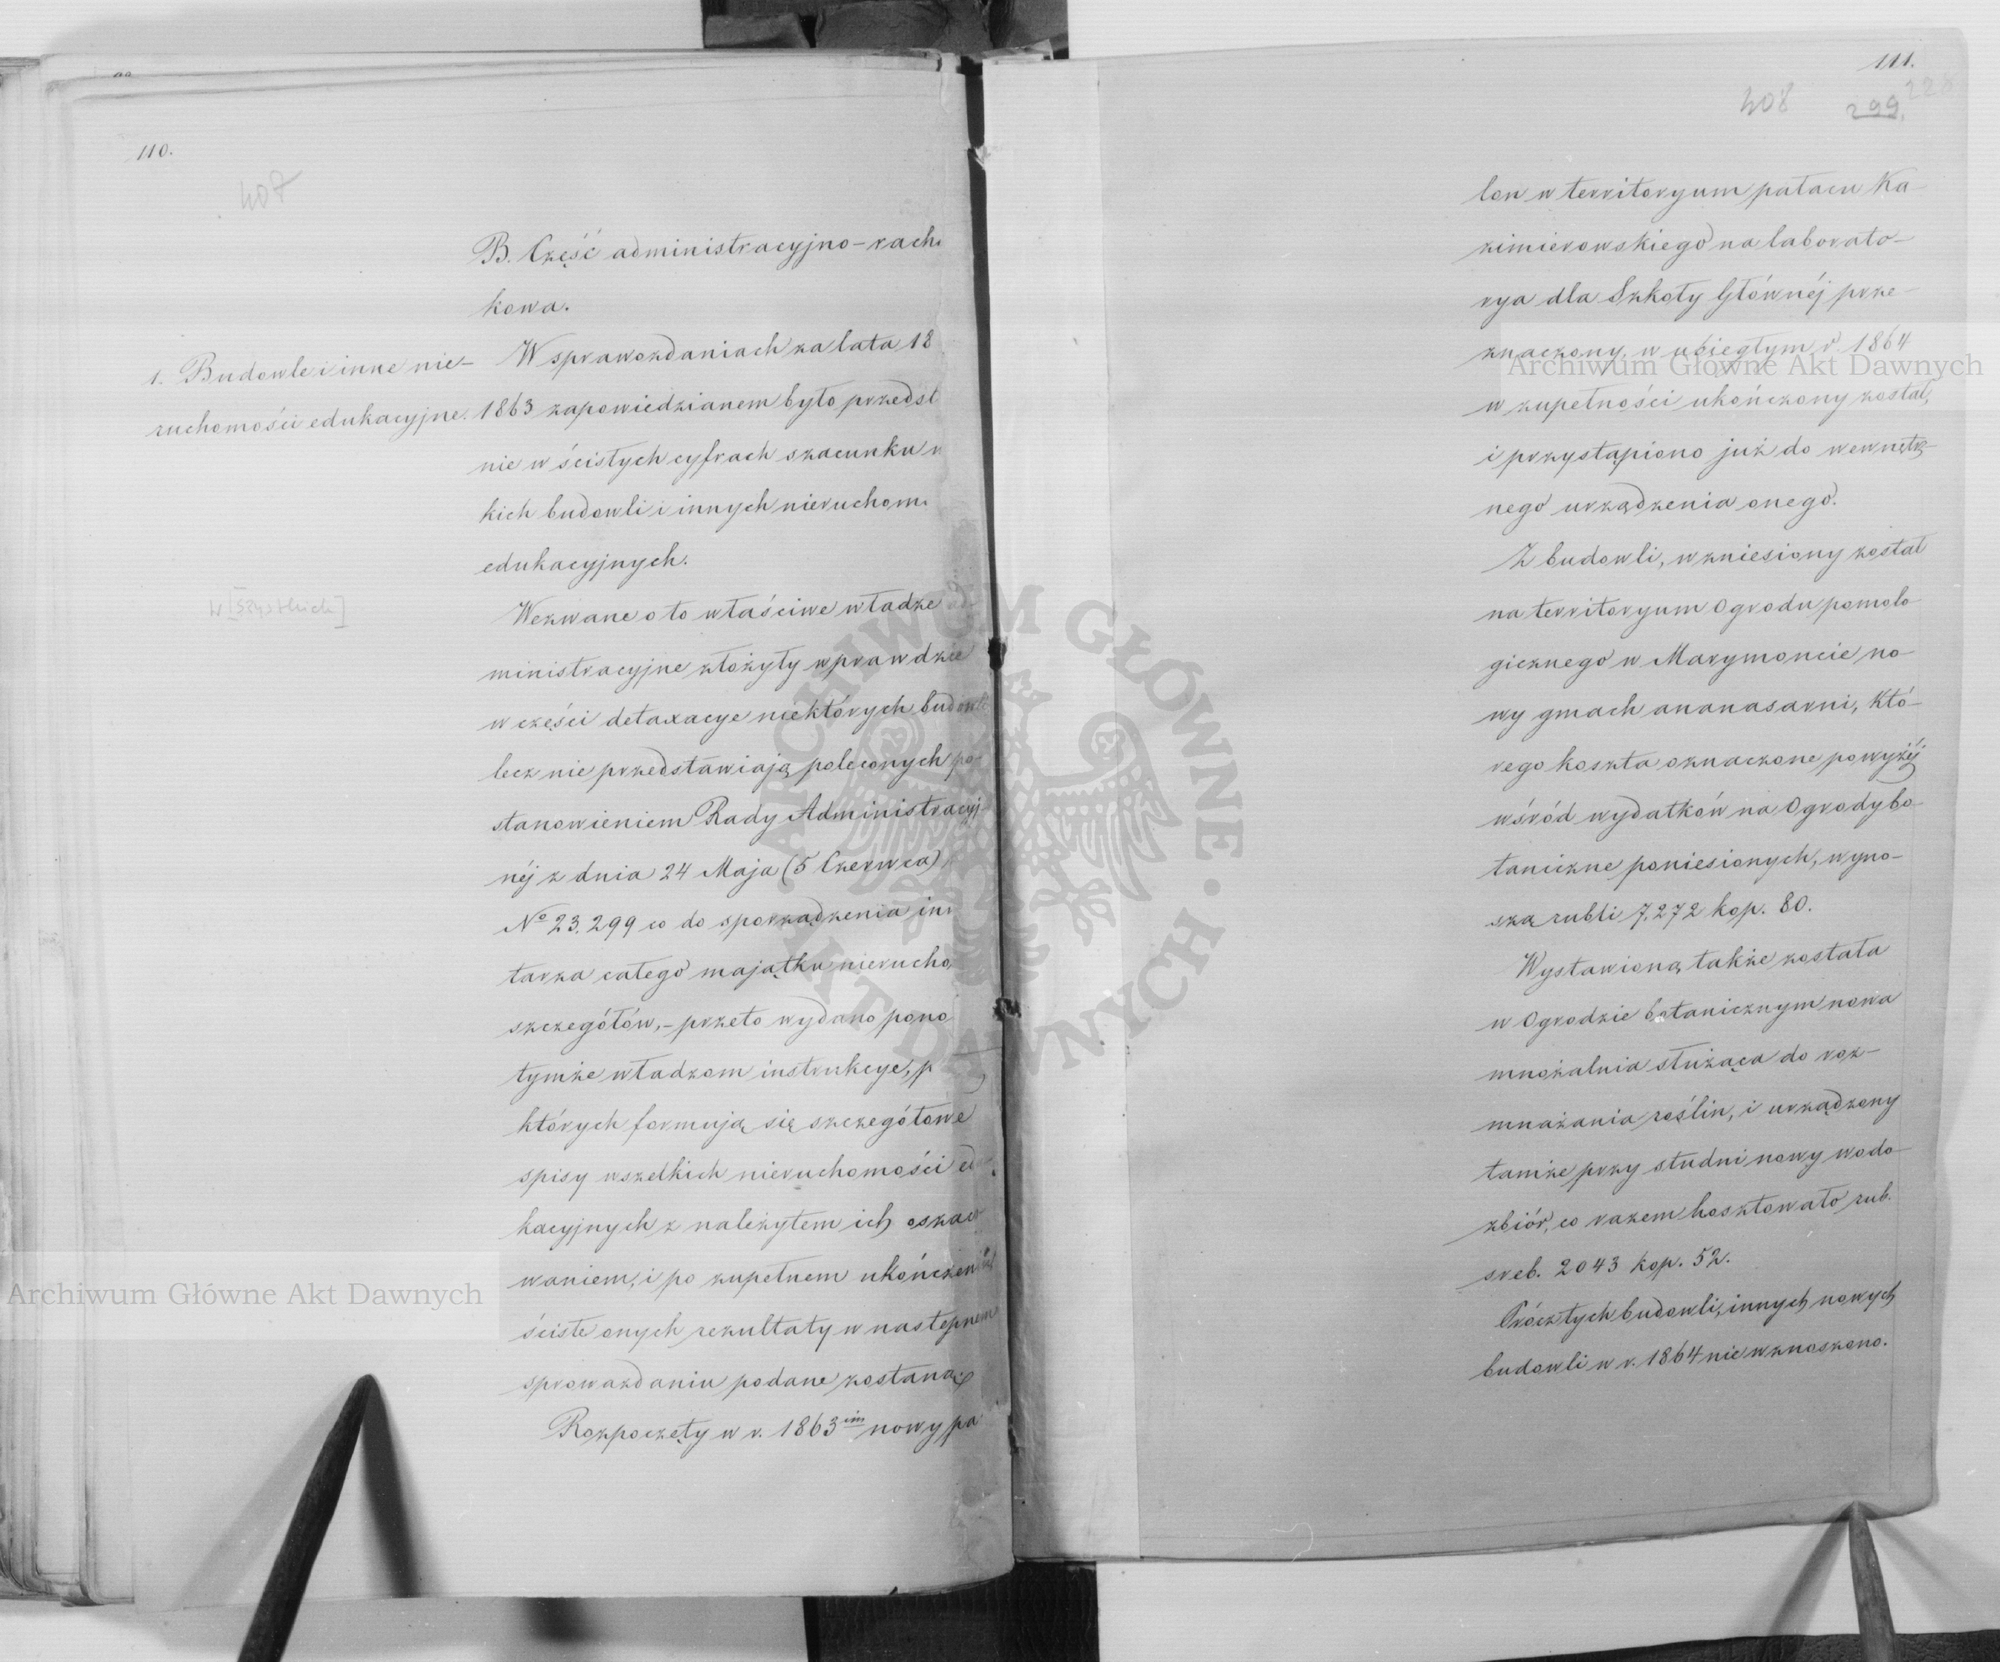 110.
407
B. Część administracyjno-rach
kowa.
1. Budowle i inne nie-
ruchomości edukacyjne.
W sprawozdaniach za lata 18
1863 zapowiedzianem było przedst
nie w ścisłych cyfrach szacunku w
kich budowli i innych nieruchom
edukacyjnych.
w[szystkich]
Wezwane o to właściwe władze ad-
ministracyjne złożyły wprawdzie
w części detaxacye niektórych budowli
lecz nie przedstawiają poleconych po-
stanowieniem Rady Administracyj-
néj z dnia 24 Maja (5 Czerwca)
No 23.299 co do sporządzenia in
tarza całego majątku nierucho
szczegółów,- przeto wydano pono
tymże władzom instrukcye, p
których formują się szczegółowe
spisy wszelkich nieruchomości edu-
kacyjnych z należytem ich oszaco
waniem, i po zupełnem ukończeniu
ściste onych rezultaty w następnem
sprawozdaniu podane zostaną.
Rozpoczęty w r. 1863im nowy pa
111.
408
299.
228
lon w territoryum pałacu Ka-
zimierowskiego na laborato-
rya dla Szkoły Głównéj prze-
znaczony, w ubiegłym r. 1864
w zupełności ukończony został,
i przystąpiono już do wewnętrz-
nego urządzenia onego.
Z budowli, wzniesiony został
na territoryum Ogrodu pomolo-
gicznego w Marymoncie no-
wy gmach ananasarni, któ-
rego koszta oznaczone powyżéj
wśród wydatków na Ogrody bo-
taniczne poniesionych, wyno-
szą rubli 7,272 kop. 80.
Wystawioną także została
w Ogrodzie botanicznym nowa
mnożalnia służąca do roz-
mnażania roślin, i urządzony
tamże przy studni nowy wodo-
zbiór, co razem kosztowało rub.
sreb. 2043 kop. 52.
Prócz tych budowli, innych nowych
budowli w r. 1864 nie wznoszono.
Archiwum Główne Akt Dawnych
Archiwum Główne Akt Dawnych
ARCHIWUM GŁÓWNE AKT DAWNYCH